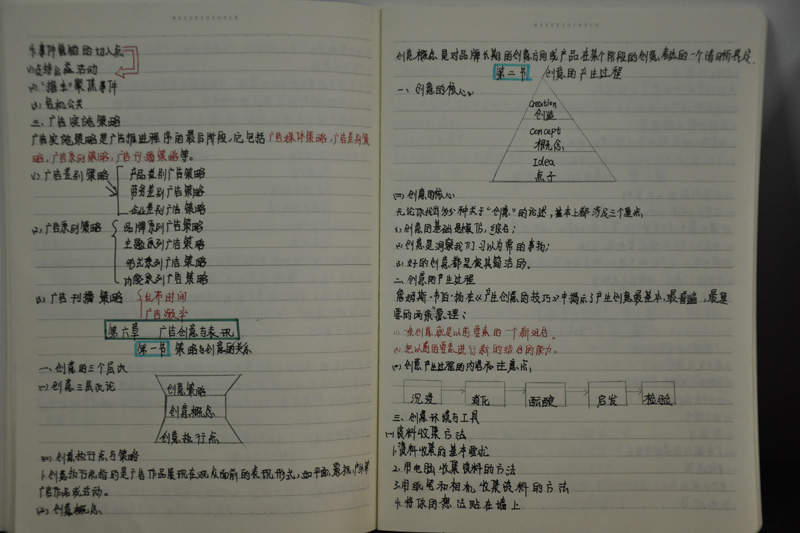 4.事件策划的切入点
(1)支持公益活动
(2)"搭车"聚焦事件
(3)危机公关
三、广告实施策略
广告实施策略是广告推进程序的最后阶段,它包括广告媒体策略,广告差别策
略,广告系列策略,广告刊播策略等。
(1)广告差别策略
产品差别广告策略
劳务差别广告策略
企业差别广告策略
(2)广告系列策略
品牌系列广告策略
主题系列广告策略
形式系列广告策略
功能系列广告策略
(3)广告刊播策略
发布时间
广告频率
第六章 广告创意与表现
第一节 策略与创意的关系
一、创意的三个层次
(一)创意三层次论
创意策略
创意概念
创意执行点
(二)创意执行点与策略
1.创意执行点指的是广告作品展现在观众面前的表现形式,如平面,影视,户外等
广告作品或活动。
(二)创意概念
创意概念是对品牌长期的创意方向或产品在某个阶段的创意表达的一个清晰界定
第二节 创意的产生过程
一、创意的核心
creation
创造
concept
概念
Idea
点子
(二)创意的核心
无论你找得到多少种关于"创意"的论述,基本上都涉及三个重点
(1)创意的基础是模仿,综合;
(2)创意是洞察我们习以为常的事物;
(3)好的创意都是极其简洁的。
二、创意的产生过程
詹姆斯·韦伯·扬在《产生创意的技巧》中揭示了产生创意最基本,最普遍,最重
要的两条原理:
(1)一条创意就是以前要素的一个新组合。
(2)把以前的要素进行新的组合的能力。
(一)创意产生过程的内容和注意点
沉浸
消化
酝酿
启发
检验
三、创意环境与工具
(一)资料收集方法
1.资料收集的基本要求
2.用电脑收集资料的方法
3.用纸笔和相机收集资料的方法
4.将你的想法贴在墙上